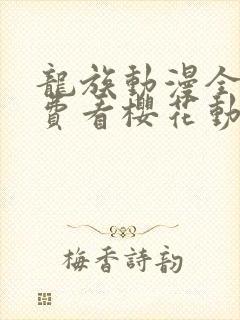 龍族動漫全
費看櫻花動
梅香詩韵